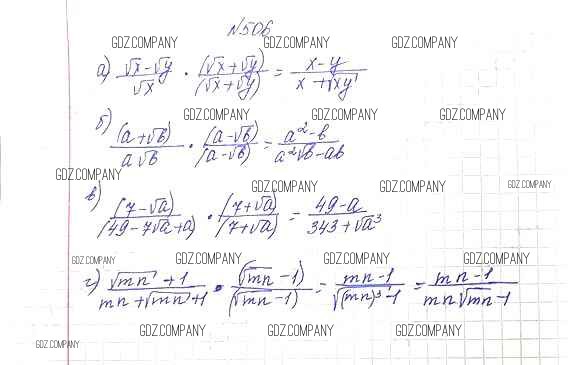 №506
GDZ.COMPANY GDZ.COMPANY GDZ.COMPANY
а) (√x-√y)/√x · (√x+√y)/(√x+√y) = (x-y)/(x+√xy)
GDZ.COMPANY GDZ.COMPANY GDZ.COMPANY
б) (a+√b)/(a√b) · (a-√b)/(a-√b) = (a²-b)/(a²√b-ab)
GDZ.COMPANY GDZ.COMPANY GDZ.COMPANY GDZ.COMPANY
в) (7-√a)/(49-7√a+a) · (7+√a)/(7+√a) = (49-a)/(343+√a³)
GDZ.COMPANY GDZ.COMPANY GDZ.COMPANY GDZ.COMPANY
г) (√mn+1)/(mn+√mn+1) · (√mn-1)/(√mn-1) = (mn-1)/(√(mn)³-1) = (mn-1)/(mn√mn-1)
GDZ.COMPANY GDZ.COMPANY GDZ.COMPANY
GDZ.COMPANY